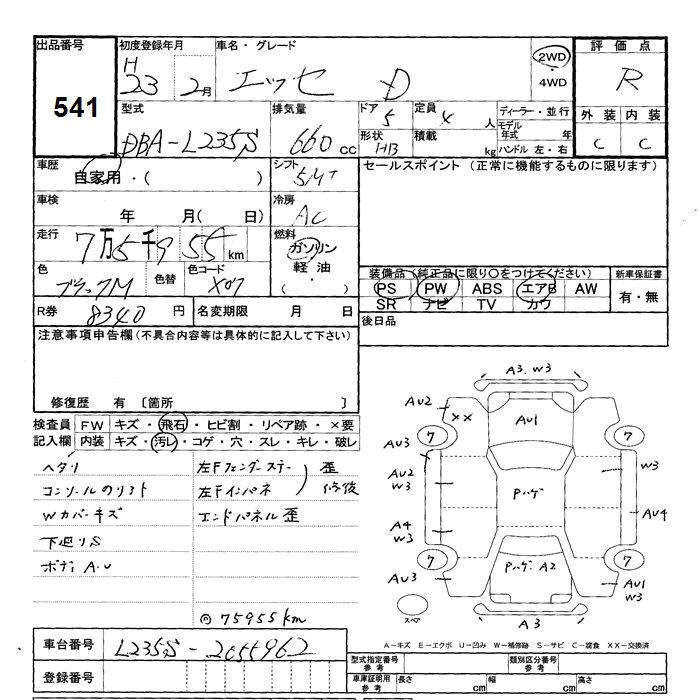 出品番号
541
初度登録年月
H
23 2月
車名・グレード
エッセ D
2WD
・
4WD
評価点
R
外装 内装
C C
型式
DBA-L235S
排気量
660 cc
ドア
5
定員
4 人
形状
HB
積載
kg
ディーラー・並行
モデル年式 年
ハンドル 左・右
車歴
自家用・( )
シフト
5MT
車検
年 月( 日)
冷房
AC
走行
7万5千955km
燃料
ガソリン
軽油
( ・ )
色
ブラックM
色替
色コード
X07
R券
8340円
名変期限 月 日
セールスポイント (正常に機能するものに限ります)
装備品(純正品に限り○をつけてください)
PS PW ABS エアB AW
SR ナビ TV カワ
新車保証書
有・無
後日品
注意事項申告欄(不具合内容等は具体的に記入して下さい)
修復歴 有 〔箇所 〕
検査員記入欄
FW キズ・飛石・ヒビ割・リペア跡・×要
内装 キズ・汚レ・コゲ・穴・スレ・キレ・破レ
ヘタリ
コンソールのリフト
Wカバーキズ
下廻りS
ボディA・U
左Fフェンダーステー
左Fインパネ
歪
修後
エンドパネル歪
◎75955km
A3.W3
AU2
XX
AU1
AU3
7
7
AU2
W3
W3
Pハゲ
A4
W3
AU4
7
7
AU3
PハゲA2
AU1
W3
スペア
A3
A-キズ E-エクボ U-凹み W-補修跡 S-サビ C-腐食 XX-交換済
車台番号
L235S-2055962
登録番号
型式指定番号
参考
類別区分番号
参考
車庫証明用
参考
長さ cm
幅 cm
高さ cm